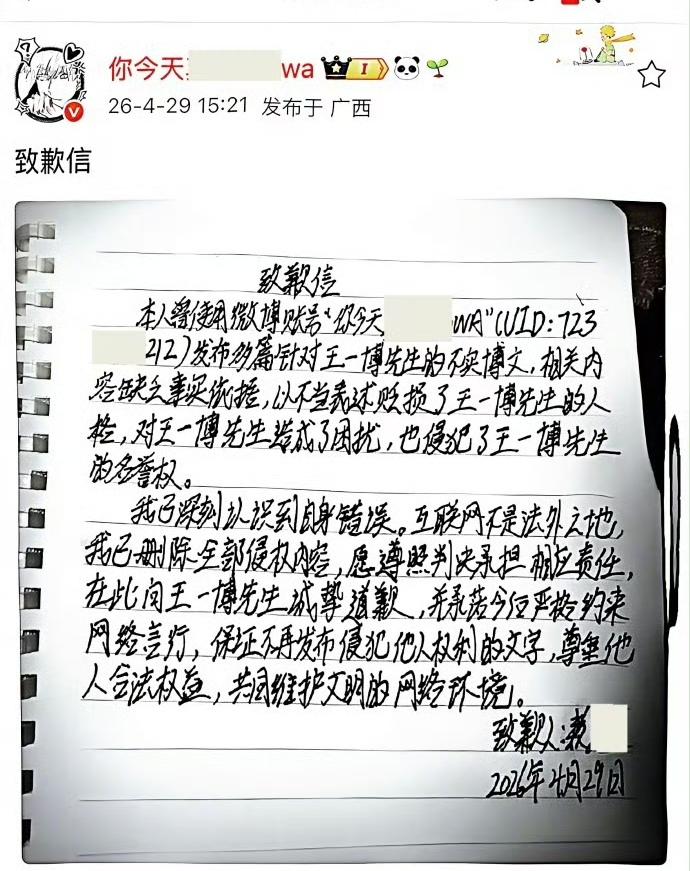 你今天 wa I
26-4-29 15:21 发布于 广西
致歉信
致歉信
本人曾使用微博账号“你今天 WA”(UID:723
212)发布多篇针对王一博先生的不实博文,相关内
容缺乏事实依据,以不当表述贬损了王一博先生的人
格,对王一博先生造成了困扰,也侵犯了王一博先生
的名誉权。
我已深刻认识到自身错误。互联网不是法外之地,
我已删除全部侵权内容,愿遵照判决承担相应责任,
在此向王一博先生诚挚道歉,并承诺今后严格约束
网络言行,保证不再发布侵犯他人权利的文字,尊重他
人合法权益,共同维护文明的网络环境。
致歉人:
2026年4月29日